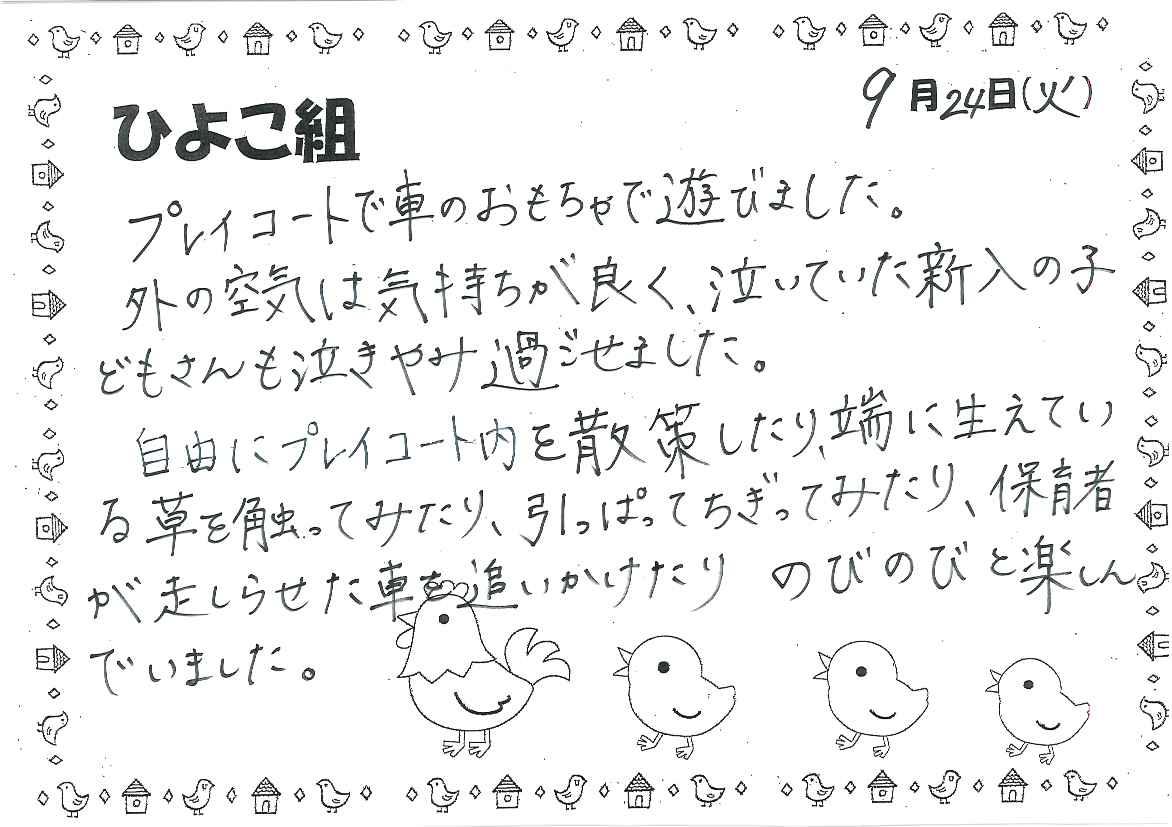 9月24日(火)
ひよこ組
プレイコートで車のおもちゃで遊びました。
外の空気は気持ちが良く、泣いていた新入の子
どもさんも泣きやみ過ごせました。
自由にプレイコート内を散策したり、端に生えてい
る草を触ってみたり、引っぱってちぎってみたり、保育者
が走しらせた車を追いかけたり のびのびと楽しん
でいました。